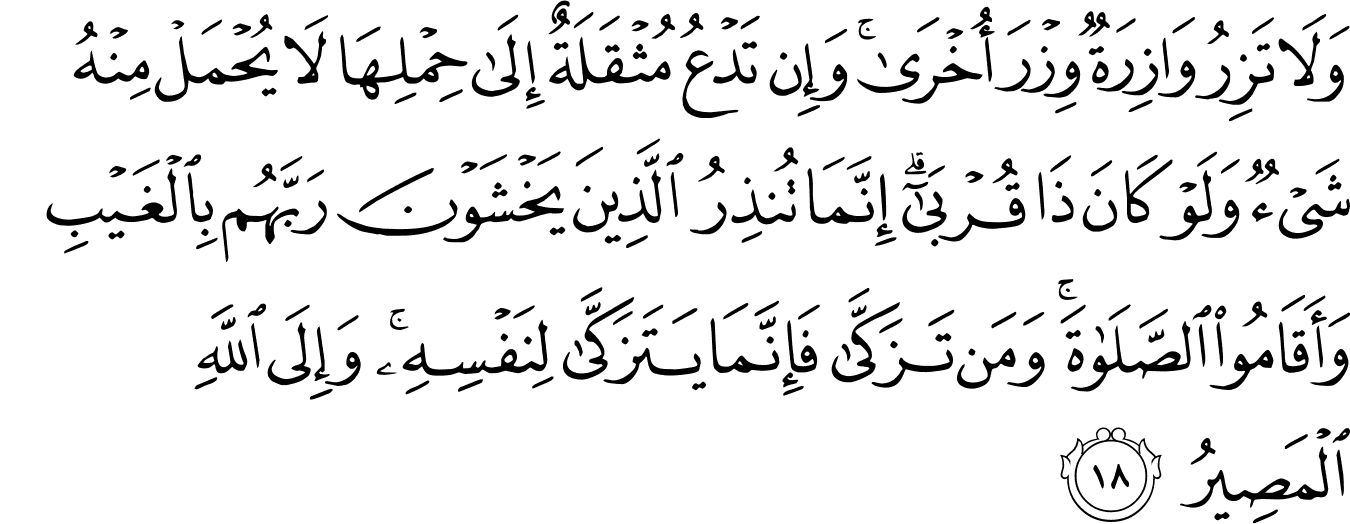 وَلَا تَزِرُ وَازِرَةٌ وِزْرَ أُخْرَىٰ ۚ وَإِن تَدْعُ مُثْقَلَةٌ إِلَىٰ حِمْلِهَا لَا يُحْمَلْ مِنْهُ
شَىْءٌ وَلَوْ كَانَ ذَا قُرْبَىٰٓ ۗ إِنَّمَا تُنذِرُ ٱلَّذِينَ يَخْشَوْنَ رَبَّهُم بِٱلْغَيْبِ
وَأَقَامُوا۟ ٱلصَّلَوٰةَ ۚ وَمَن تَزَكَّىٰ فَإِنَّمَا يَتَزَكَّىٰ لِنَفْسِهِۦ ۚ وَإِلَى ٱللَّهِ
ٱلْمَصِيرُ ١٨